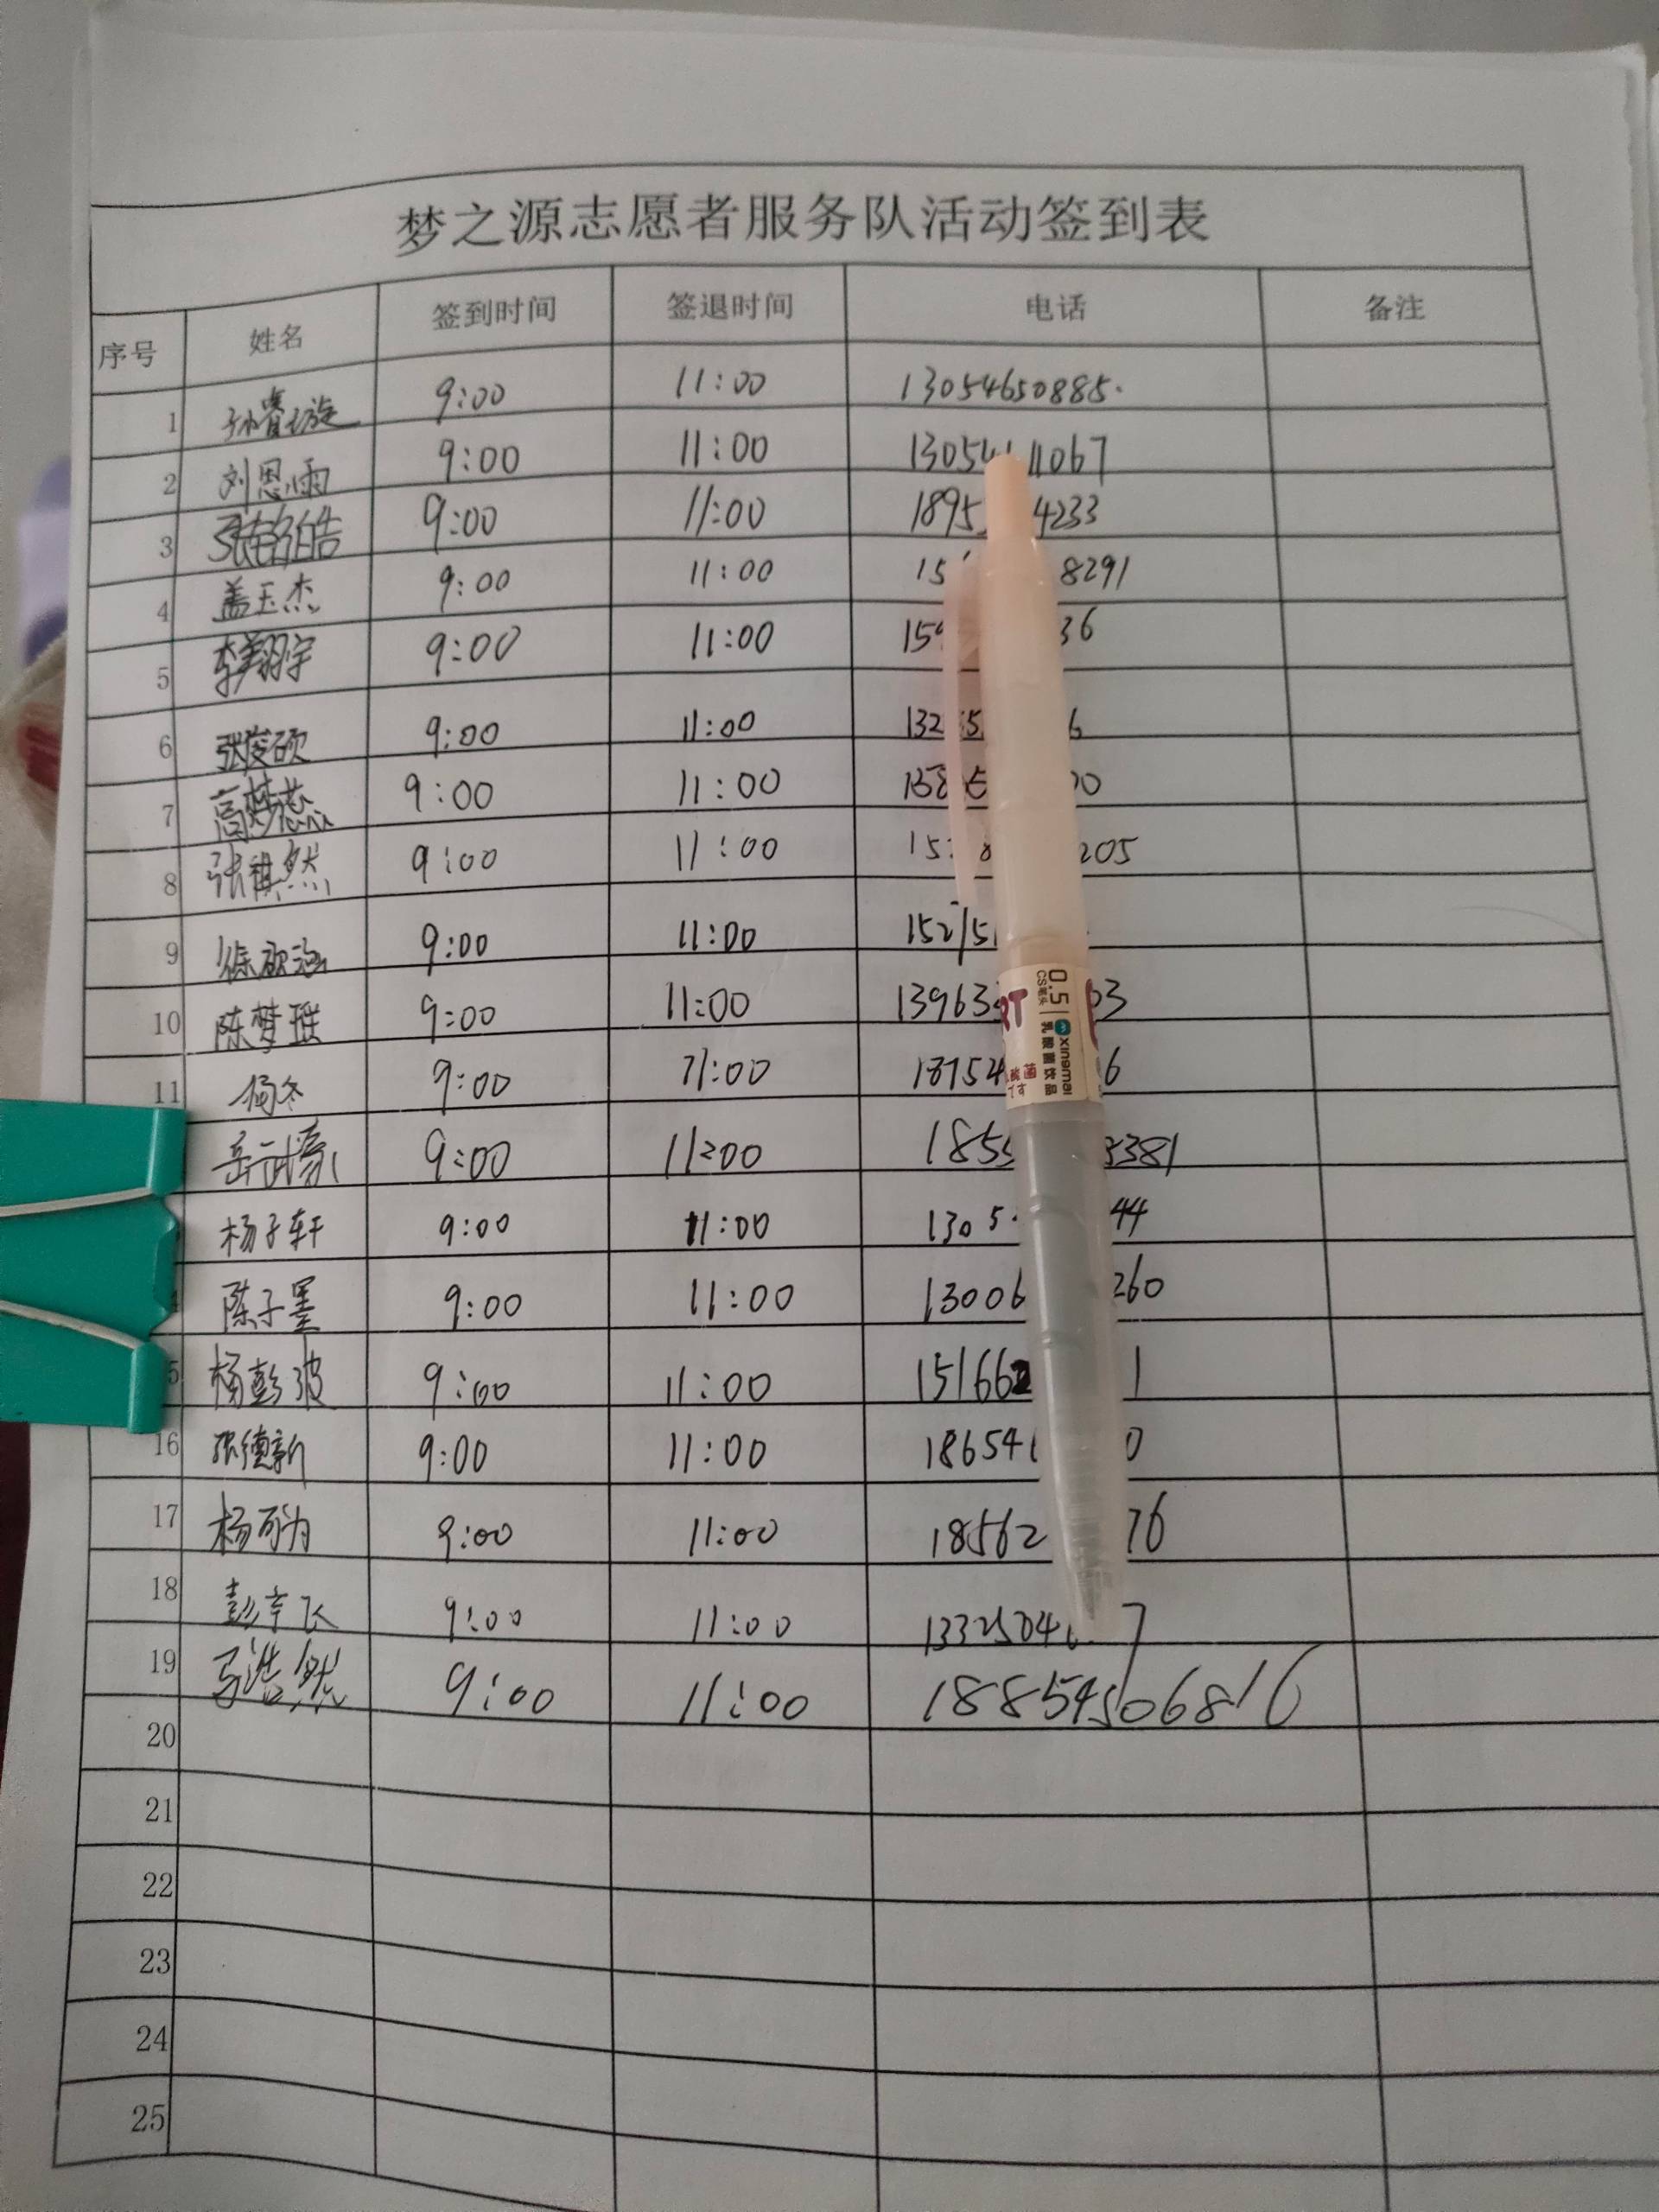 梦之源志愿者服务队活动签到表
序号 姓名 签到时间 签退时间 电话 备注
1 孙睿璇 9:00 11:00 13054650885.
2 刘恩雨 9:00 11:00 1305411067
3 张铭皓 9:00 11:00 1895 4233
4 盖玉杰 9:00 11:00 15 8291
5 李翔宇 9:00 11:00 159 36
6 张俊硕 9:00 11:00 132 5 6
7 高梦燕 9:00 11:00 158 5 00
8 张祺然 9:00 11:00 15 8 205
9 徐 涵 9:00 11:00 15215
10 陈梦 9:00 11:00 13963 03
11 杨冬 9:00 11:00 18754 6
岳 豪 9:00 11:00 185 5381
杨子轩 9:00 11:00 1305 44
陈子墨 9:00 11:00 13006 260
5 杨彭波 9:00 11:00 151662 1
16 张德新 9:00 11:00 18654 0
17 杨 为 9:00 11:00 18562 76
18 彭宇飞 9:00 11:00 13325046 7
19 马浩然 9:00 11:00 18854506816
20
21
22
23
24
25
0.5
CS笔头
xinamai
乳酸菌饮品
RT